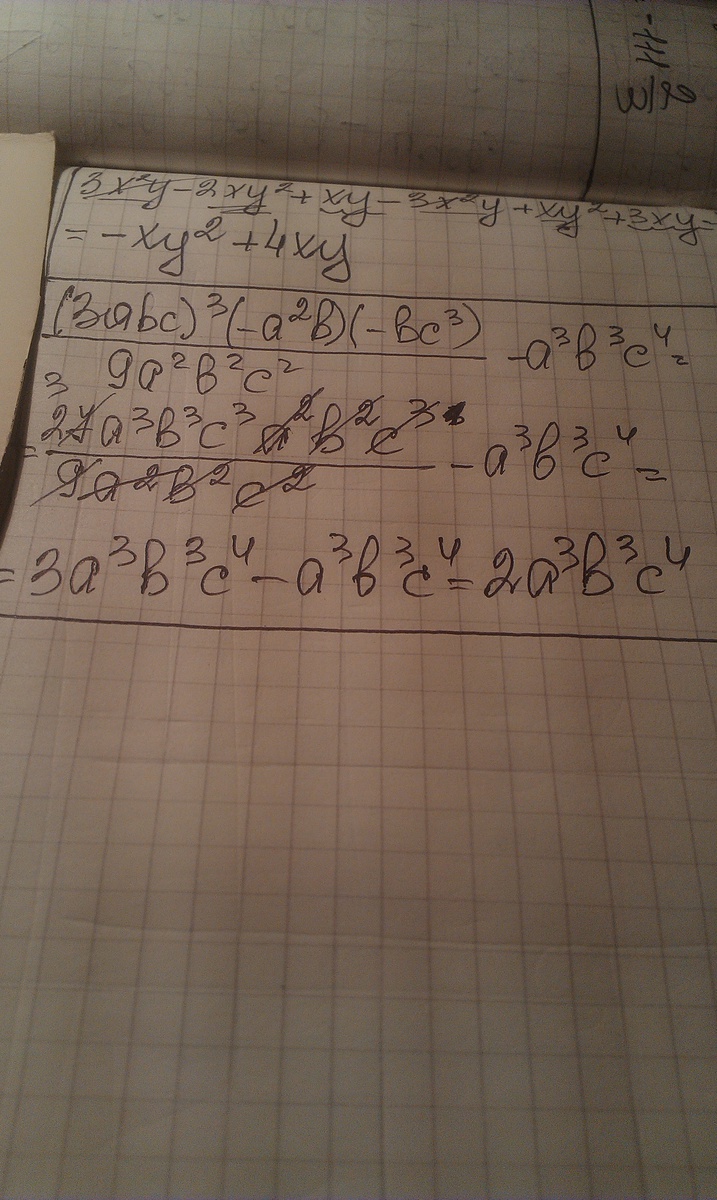 3x²y-2xy²+xy-3x²y+xy²+3xy=
=-xy²+4xy
(3abc)³(-a²b)(-bc³)/9a²b²c² -a³b³c⁴=
=27a³b³c³a²b²c³/9a²b²c² -a³b³c⁴=
3
=3a³b³c⁴-a³b³c⁴=2a³b³c⁴